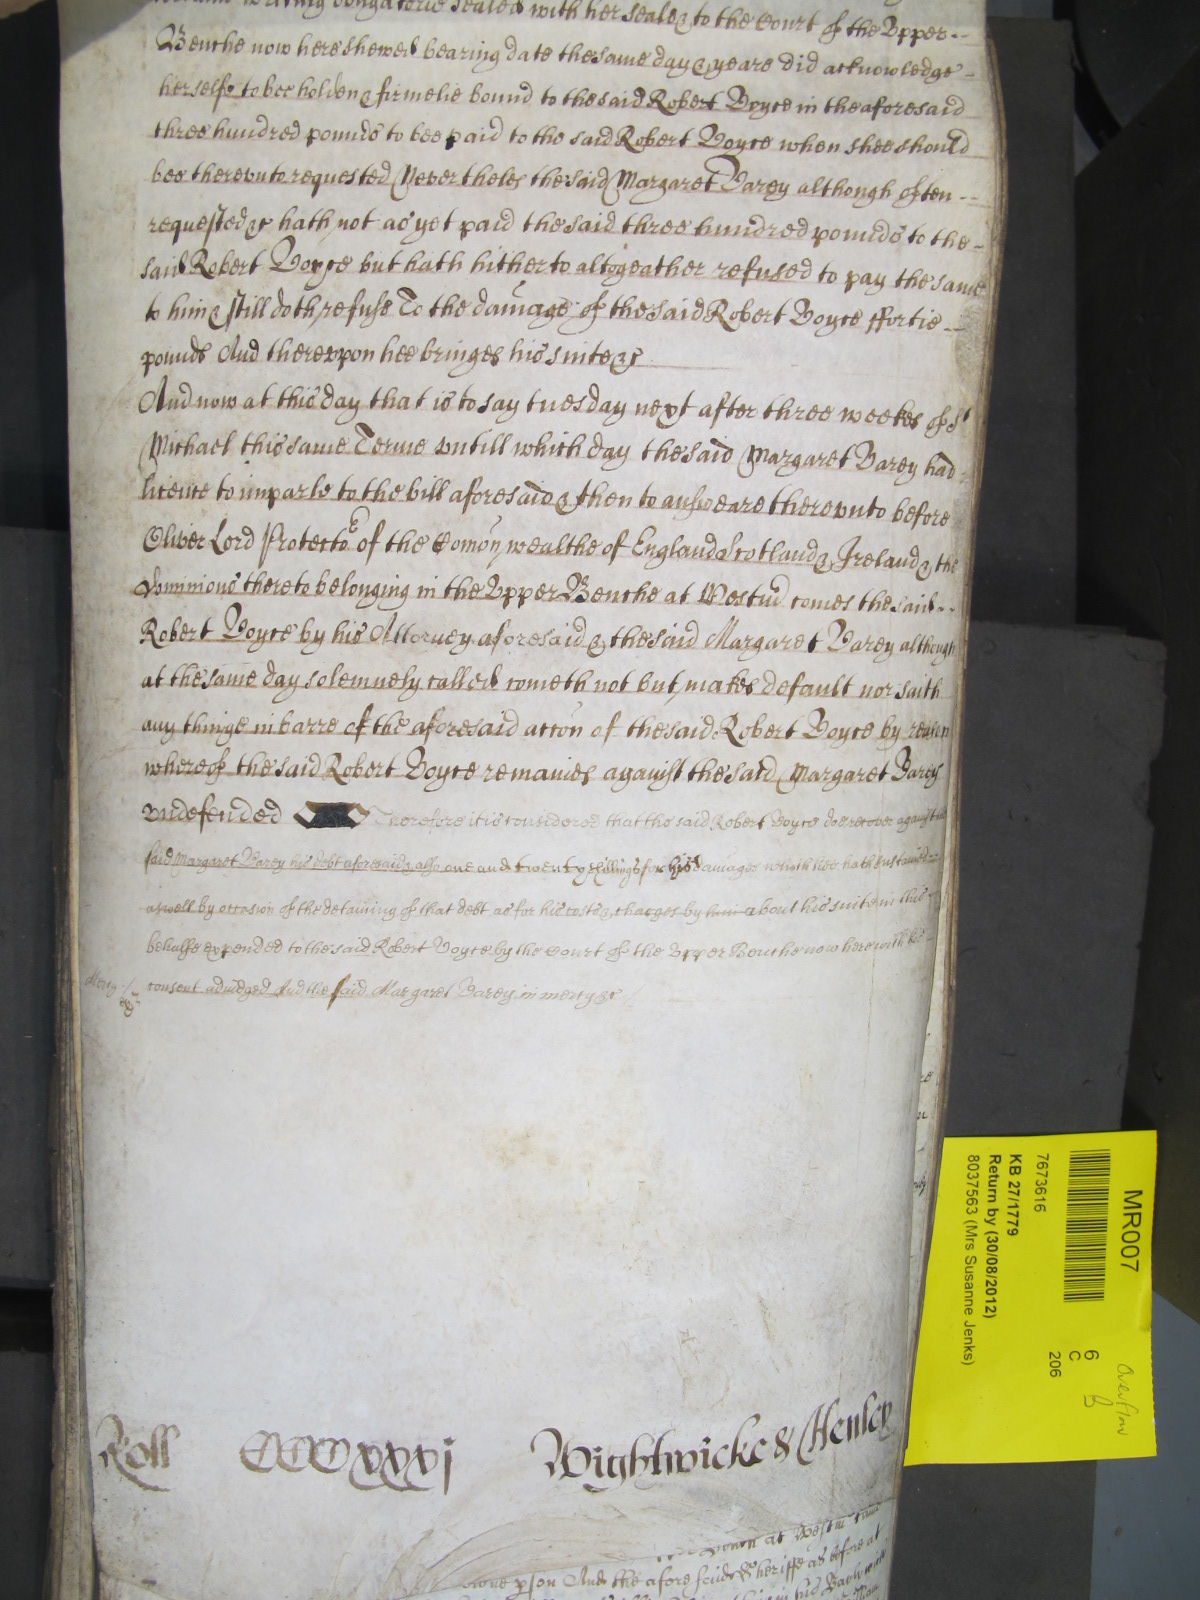 writing obligatorie sealed with her seale & to the Court of the Upper--
Benche now here shewed bearing date the same day & yeare did acknowledge-
herselfe to bee holden & firmelie bound to the said Robert Boyce in the aforesaid
three hundred pounds to bee paid to the said Robert Boyce when shee should
bee therevnto requested Neverthelesse the said Margaret Darey although often--
requested &c hath not as yet paid the said three hundred pounds to the-
said Robert Boyce but hath hitherto altogeather refused to pay the same
to him & still doth refuse To the damage of the said Robert Boyce ffortie--
pounds And therevpon hee bringes his suite &c
And now at this day that is to say tuesday next after three weekes of St
Michael this same Terme vntill which day the said Margaret Darey had
licence to imparle to the bill aforesaid & then to answeare therevnto before
Oliver Lord Protector of the Comon wealthe of England Scotland & Ireland & the
dominions thereto belonging in the Vpper Benche at Westm comes the said--
Robert Boyce by his Attorney aforesaid & the said Margaret Darey although
at the same day solemnely called cometh not but makes default nor saith
any thinge in barre of the aforesaid accon of the said Robert Boyce by reason
whereof the said Robert Boyce remaines against the said Margaret Darey
vndefended Therefore it is considered that the said Robert Boyce doe recover against the
said Margaret Darey his debt aforesaid & also one and twenty shillings for his damages which hee hath susteined
aswell by occasion of the detaining of that debt as for his costs & charges by him about his suite in this
behalfe expended to the said Robert Boyce by the Court of the Vpper Benche now here with his
consent adiudged And the said Margaret Darey in mercy &c
Mercy
Roll CCCCxxxj Wightwicke & Henley
at Westm
And the afore said Sheriffe as before at
MR007
7673616
KB 27/1779
Return by (30/08/2012)
8037563 (Mrs Susanne Jenks)
6
C
206
Overflow
B